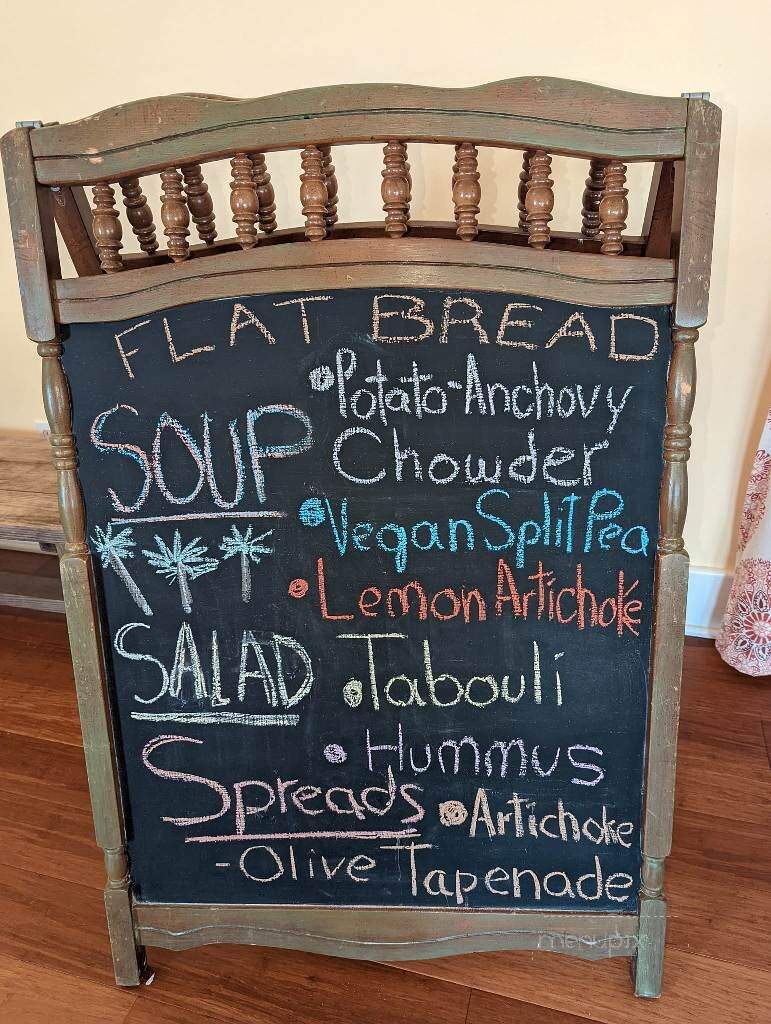 FLAT BREAD
•Potato-Anchovy
SOUP Chowder
•Vegan Split Pea
•Lemon Artichoke
SALAD •Tabouli
•Hummus
Spreads •Artichoke
-Olive Tapenade
menupix